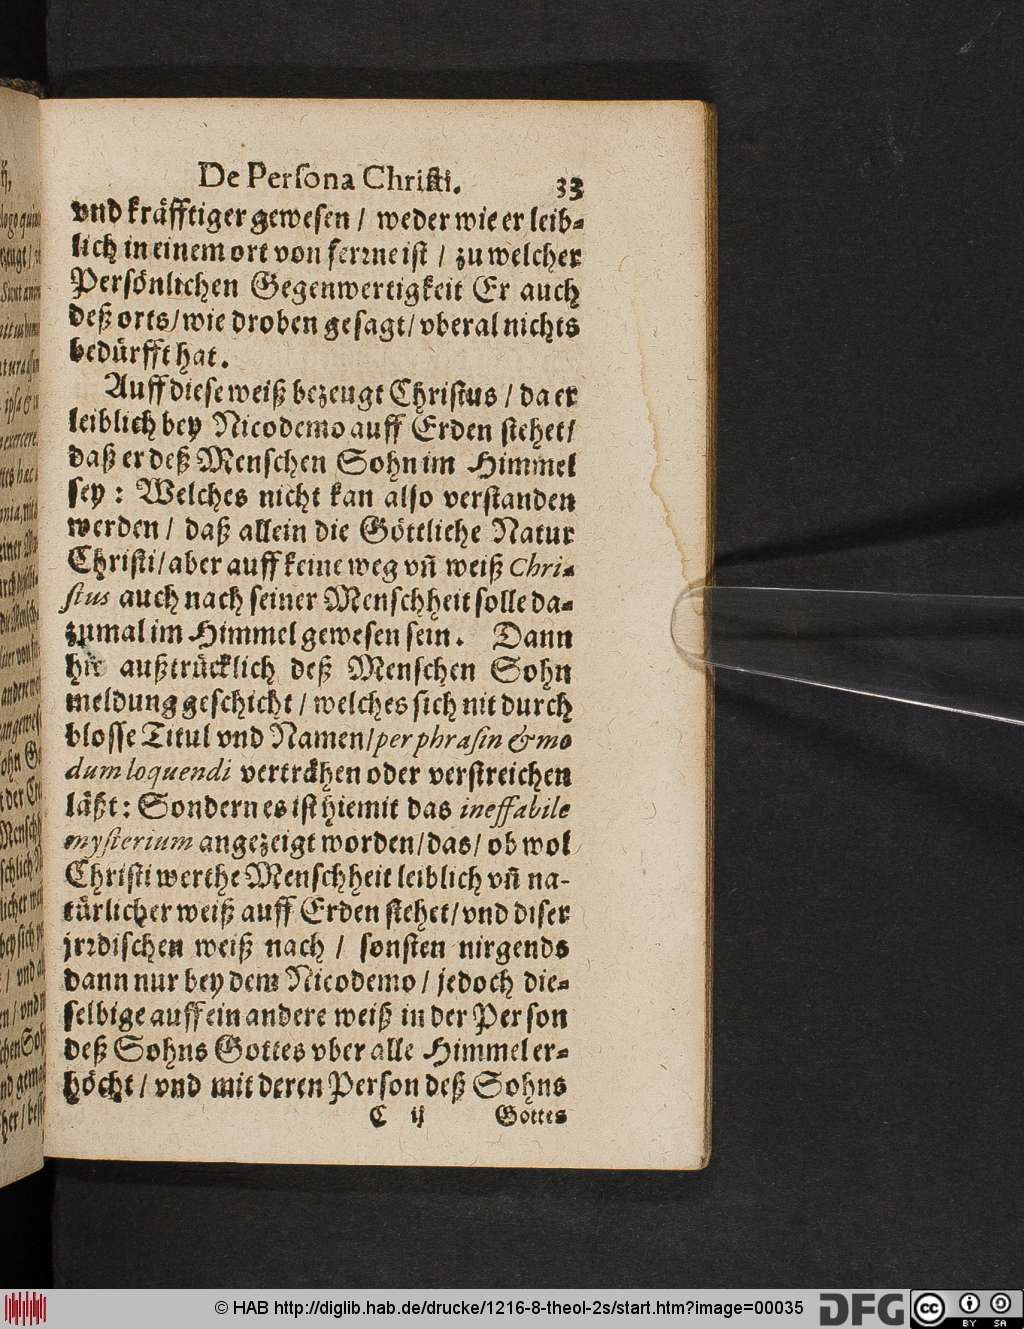 De Persona Christi. 33
vnd kräfftiger gewesen / weder wie er leib-
lich in einem ort von ferrne ist / zu welcher
Persönlichen Gegenwertigkeit Er auch
deß orts / wie droben gesagt / vberal nichts
bedürfft hat.
Auff diese weiß bezeugt Christus / da er
leiblich bey Nicodemo auff Erden stehet /
daß er deß Menschen Sohn im Himmel
sey : Welches nicht kan also verstanden
werden / daß allein die Göttliche Natur
Christi / aber auff keine weg vñ weiß Chri-
stus auch nach seiner Menschheit solle da-
zumal im Himmel gewesen sein. Dann
hie außtrücklich deß Menschen Sohn
meldung geschicht / welches sich nit durch
blosse Titul vnd Namen / per phrasin & mo
dum loquendi verträhen oder verstreichen
läßt : Sondern es ist hiemit das ineffabile
mysterium angezeigt worden / das / ob wol
Christi werthe Menschheit leiblich vñ na-
türlicher weiß auff Erden stehet / vnd diser
jrrdischen weiß nach / sonsten nirgends
dann nur bey dem Nicodemo / jedoch die-
selbige auff ein andere weiß in der Person
deß Sohns Gottes vber alle Himmel er-
höcht / vnd mit deren Person deß Sohns
C ij Gottes
© HAB http://diglib.hab.de/drucke/1216-8-theol-2s/start.htm?image=00035
DFG
cc BY SA